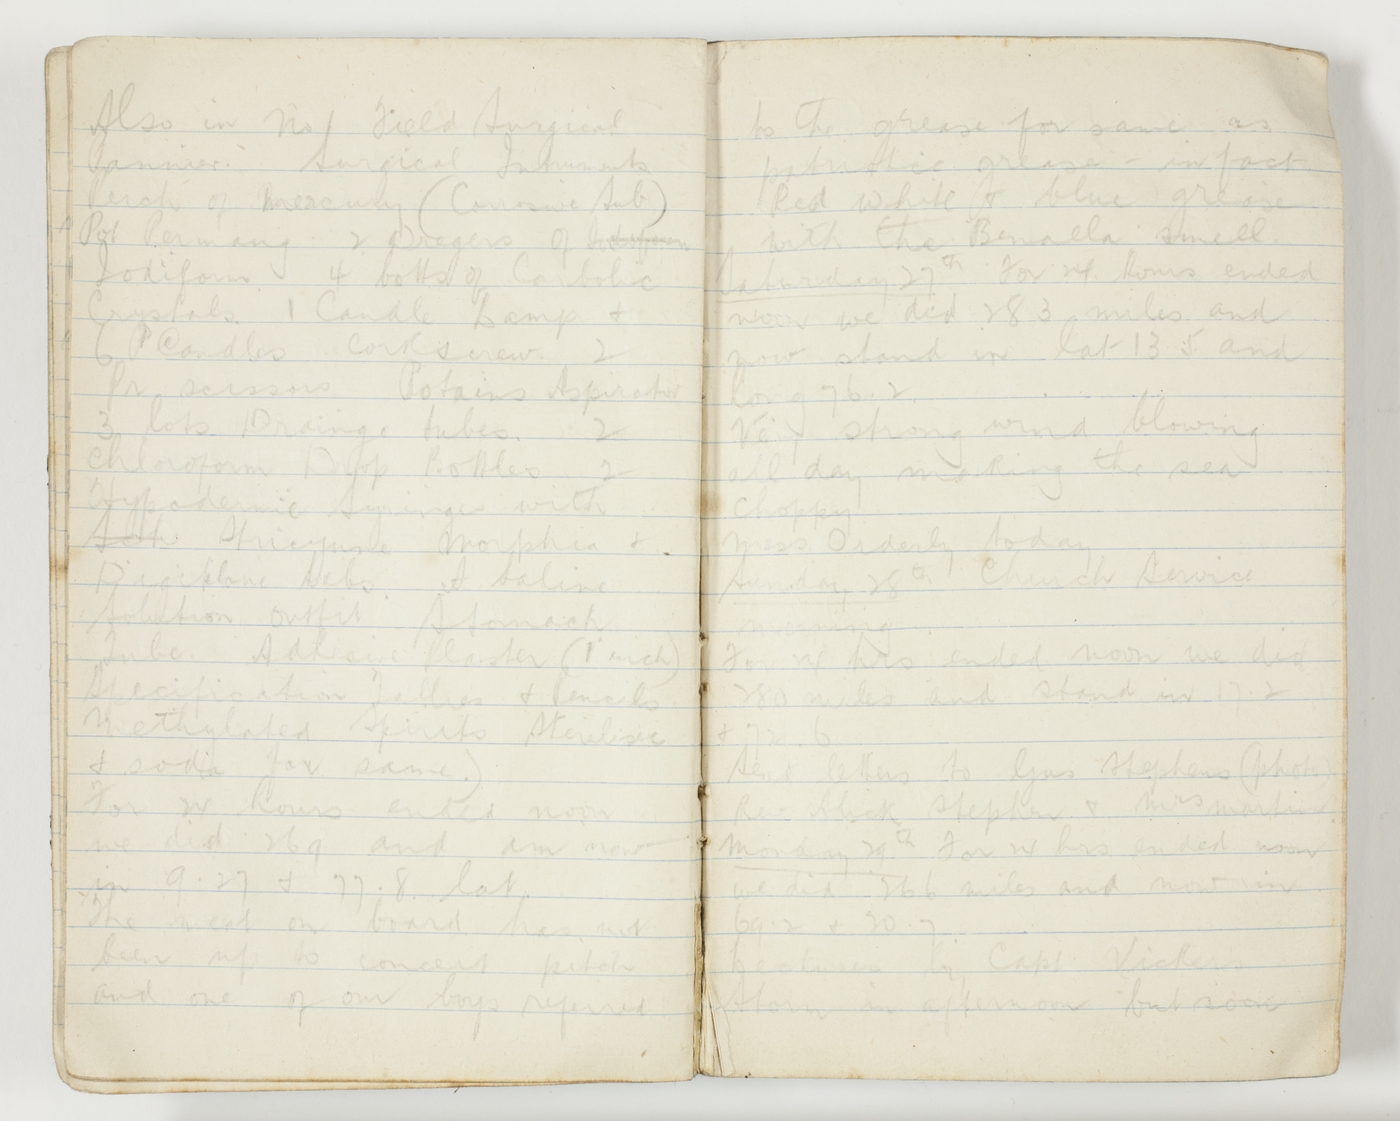 Also in No 1 Field Surgical
Pannier. Surgical Instruments
Perch of Mercury (Corrosive Sub)
Pot Permang 2 Dregers of Iodiform
Iodiform 4 botts of Carbolic
Crystals 1 Candle Lamp &
6 P Candles corkscrew 2
Pr scissors Potains Aspirator
3 lots Drainge tubes. 2
Chloroform Drop Bottles 2
Hypodermic Syringes with
Morphia &
Tabs. A Saline
Solution outfit Stomach
Tube. Adhesive Plaster (1 inch)
Specification Tallies & Pencils
Methylated Spirits Steriliser
& soda for same.)
For 24 hours ended noon
we did 269 and am now
in 9.27 & 77.8 lat.
The meat on board has not
been up to concert pitch
and one of our boys referred
to the grease for same as
patriotic grease - in fact
Red White & blue grease
with the Benalla smell.
Saturday 27th For 24 hours ended
noon we did 283 miles and
now stand in lat 13.5 and
long 76.2.
Very strong wind blowing
all day making the sea
choppy
Mess Orderly today
Sunday 28th Church Service
morning
For 24 hrs ended noon we did
280 miles and stand in 17.2
& 72.6
Sent letters to Gus Stephens (photo)
Rev Stephen & Mrs Martin
Monday 29th For 24 hrs ended noon
we did 266 miles and now in
69.2 & 20.7
Lectures by Capt Vickers
Storm in afternoon but soon